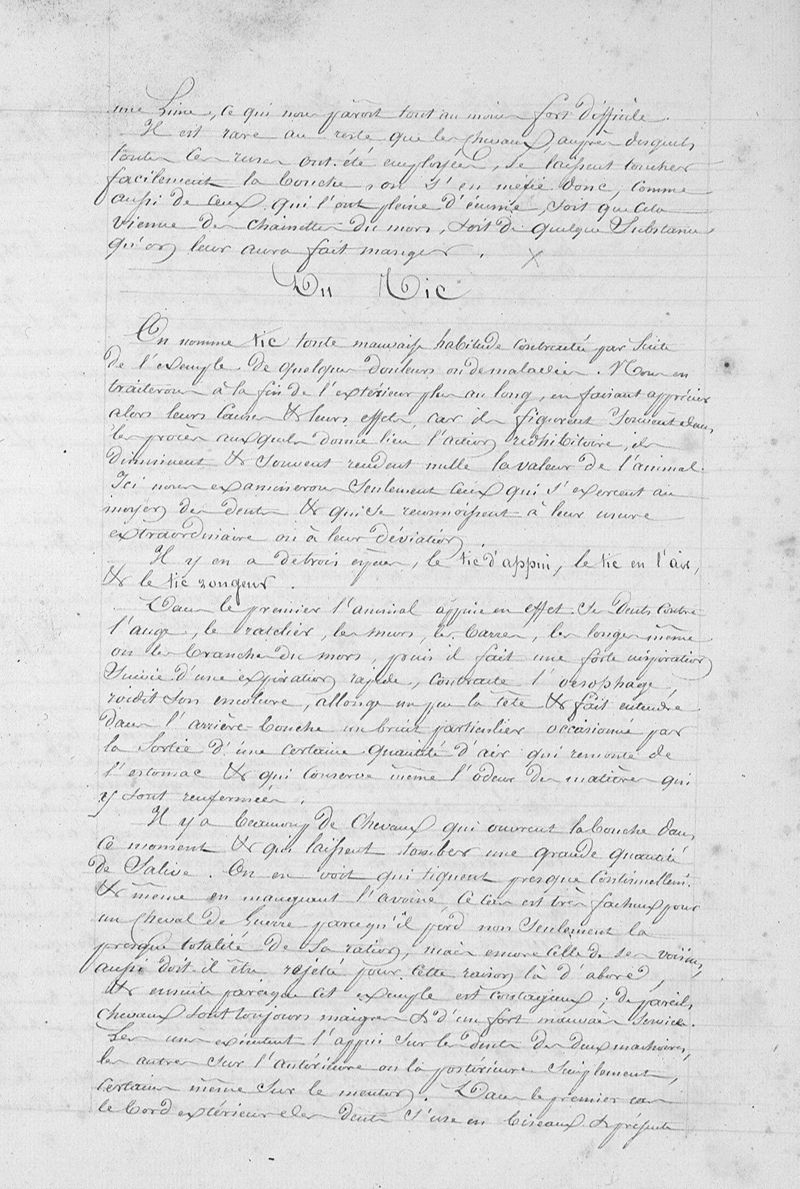 une Lime, ce qui nous paroit tout au moins fort difficile.
Il est rare au reste que les chevaux auprès desquels
toutes ces ruses ont été employées, se laissent toucher
facilement la bouche, on s'en méfie donc, comme
aussi de ceux qui l'ont pleine d'écume, soit que cela
vienne des chainettes du mors, soit de quelque substance
qu'on leur aura fait manger.
Du Tic
On nomme tic toute mauvaise habitude contractée par suite
de l'exemple de quelques douleurs ou de maladies. Nous en
traiterons à la fin de l'extérieur plus au long, en faisant apprécier
alors leurs causes & leurs effets, car ils figurent souvent dans
les procès auxquels donne lieu l'action rédhibitoire, ils
diminuent & souvent rendent nulle la valeur de l'animal.
Ici nous examinerons seulement ceux qui s'exercent au
moyen des dents & qui se reconnoissent à leur usure
extraordinaire ou à leur déviation.
Il y en a de trois espèces, le tic d'appui, le tic en l'air,
& le tic rongeur.
Dans le premier l'animal appuie en effet ses dents contre
l'auge, le ratelier, les murs, les barres, les longes même
ou les branches du mors, puis il fait une forte inspiration
suivie d'une expiration rapide, contracte l'œsophage,
roidit son encolure, allonge un peu la tête & fait entendre
dans l'arrière-bouche un bruit particulier occasionné par
la sortie d'une certaine quantité d'air qui remonte de
l'estomac & qui conserve même l'odeur des matières qui
y sont renfermées.
Il y a beaucoup de chevaux qui ouvrent la bouche dans
ce moment & qui laissent tomber une grande quantité
de salive. On en voit qui tiquent presque continuellement
& même en mangeant l'avoine ce cas est très fâcheux pour
un cheval de Guerre parcequ'il perd non seulement la
presque totalité de sa ration, mais encore celle de ses voisins,
aussi doit-il être rejeté pour cette raison là d'abord,
& ensuite parceque cet exemple est contagieux; de pareils
chevaux sont toujours maigres & d'un fort mauvais service.
Les uns exécutent l'appui sur les dents des deux machoires,
les autres sur l'antérieure ou la postérieure simplement,
certains même sur le menton. Dans le premier cas
le bord extérieur des dents s'use en biseaux & présente